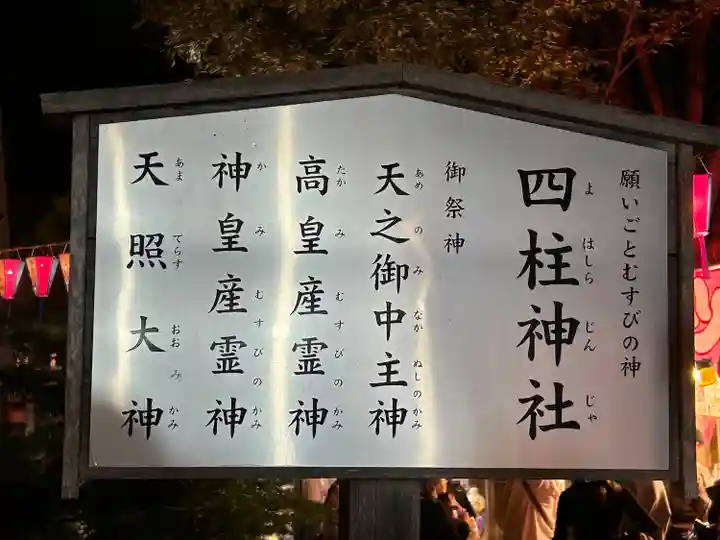 願いごとむすびの神
四柱神社
よはしらじんじゃ
御祭神
天之御中主神
あめのみなかぬしのかみ
高皇産霊神
たかみむすびのかみ
神皇産霊神
かみむすびのかみ
天照大神
あまてらすおおみかみ